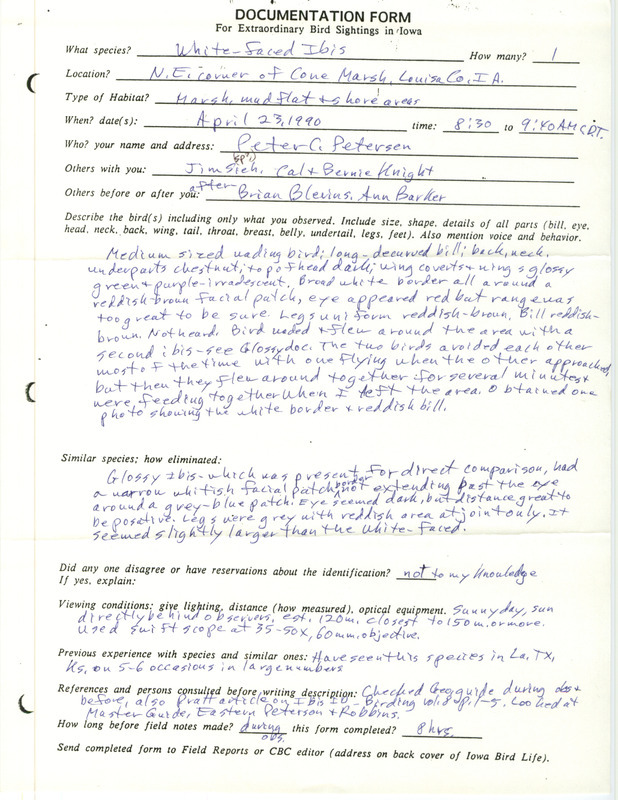 DOCUMENTATION FORM
For Extraordinary Bird Sightings in Iowa
What species? White-Faced Ibis How many? 1
Location? N.E. corner of Cone Marsh, Louisa Co, IA.
Type of Habitat? Marsh, mud flat & shore areas
When? date(s): April 23, 1990 time: 8:30 to 9:40 AM CDT.
Who? your name and address: Peter C. Petersen
(sp?)
Others with you: Jim Sieh, Cal & Bernie Knight
after
Others before or after you: Brian Blevins, Ann Barker
Describe the bird(s) including only what you observed. Include size, shape, details of all parts (bill, eye,
head, neck, back, wing, tail, throat, breast, belly, undertail, legs, feet). Also mention voice and behavior.
Medium sized wading bird; long-decurved bill; back, neck,
underparts chestnut; top of head dark; wing coverts & wings glossy
green & purple-irradescent. Broad white border all around a
reddish-brown facial patch, eye appeared red but range was
too great to be sure. Legs uniform reddish-brown. Bill reddish-
brown. Not heard. Bird waded & flew around the area with a
second ibis-see Glossy doc. The two birds avoided each other
most of the time with one flying when the other approached,
but then they flew around together for several minutes &
were feeding together when I left the area. Obtained one
photo showing the white border & reddish bill.
Similar species; how eliminated:
Glossy Ibis-which was present for direct comparison, had
a narrow whitish facial patch border not extending past the eye
around a grey-blue patch. Eye seemed dark, but distance great to
be positive. Legs were grey with reddish area at joint only. It
seemed slightly larger than the White-Faced.
Did any one disagree or have reservations about the identification? not to my knowledge
If yes, explain:
Viewing conditions: give lighting, distance (how measured), optical equipment. Sunny day, sun
directly behind observers, est. 120m. closest to 150m. or more.
Used Swift scope at 35-50x, 60mm. objective.
Previous experience with species and similar ones: Have seen this species in La, TX,
Ks, on 5-6 occasions in large numbers
References and persons consulted before writing description: Checked Geog guide during obs &
before, also Pratt article on Ibis ID - Birding p. 1-5. Looked at
Master Guide, Eastern Peterson & Robbins.
How long before field notes made? during obs. this form completed? 8 hrs.
Send completed form to Field Reports or CBC editor (address on back cover of Iowa Bird Life).